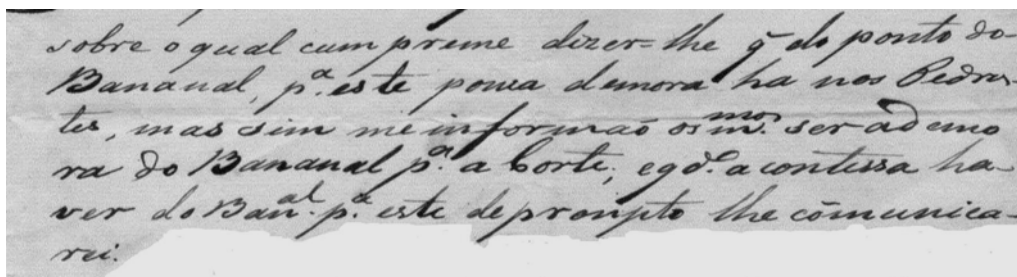 sobre o qual cumpreme dizer=lhe q̃ do ponto do
Bananal, p.ª este pouca demora ha nos Pedres-
tes, mas sim me informaõ os m.mos ser a demo
ra do Bananal p.ª a Corte; e q.do acontessa ha-
ver do Ban.al p.ª este de prompto lhe cõmunica-
rei.